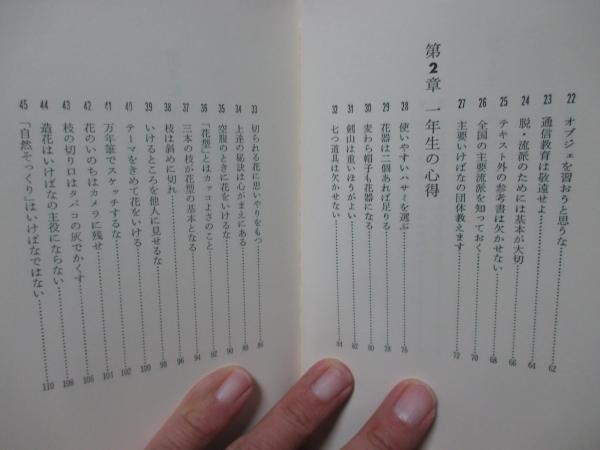 22 オブジェを習おうと思うな 62
23 通信教育は敬遠せよ 64
24 脱・流派のためには基本が大切 66
25 テキスト外の参考書は欠かせない 68
26 全国の主要流派を知っておく 70
27 主要いけばなの団体教えます 72
第2章 一年生の心得
28 使いやすいハサミを選ぶ 76
29 花器は二個あれば足りる 78
30 麦わら帽子も花器になる 80
31 剣山は重いほうがよい 82
32 七つ道具は欠かせない 84
33 切られる花に思いやりをもつ 86
34 上達の秘訣は心がまえにある 88
35 空腹のときに花をいけるな 90
36 「花型」とはカッコよさのこと 92
37 三本の枝が花型の基本となる 94
38 枝は斜めに切れ 96
39 いけるところを他人に見せるな 98
40 テーマをきめて花をいける 100
41 万年筆でスケッチするな 102
42 花のいのちはカメラに残せ 104
43 枝の切り口はタバコの灰でかくす 106
44 造花はいけばなの主役にならない 108
45 「自然そっくり」はいけばなではない 110